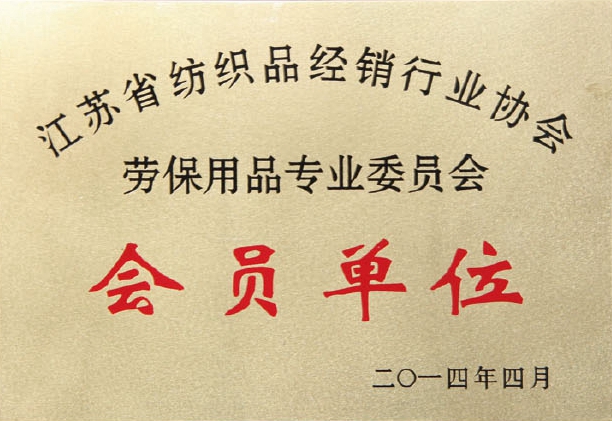 江苏省纺织品经销行业协会
劳保用品专业委员会
会员单位
二〇一四年四月